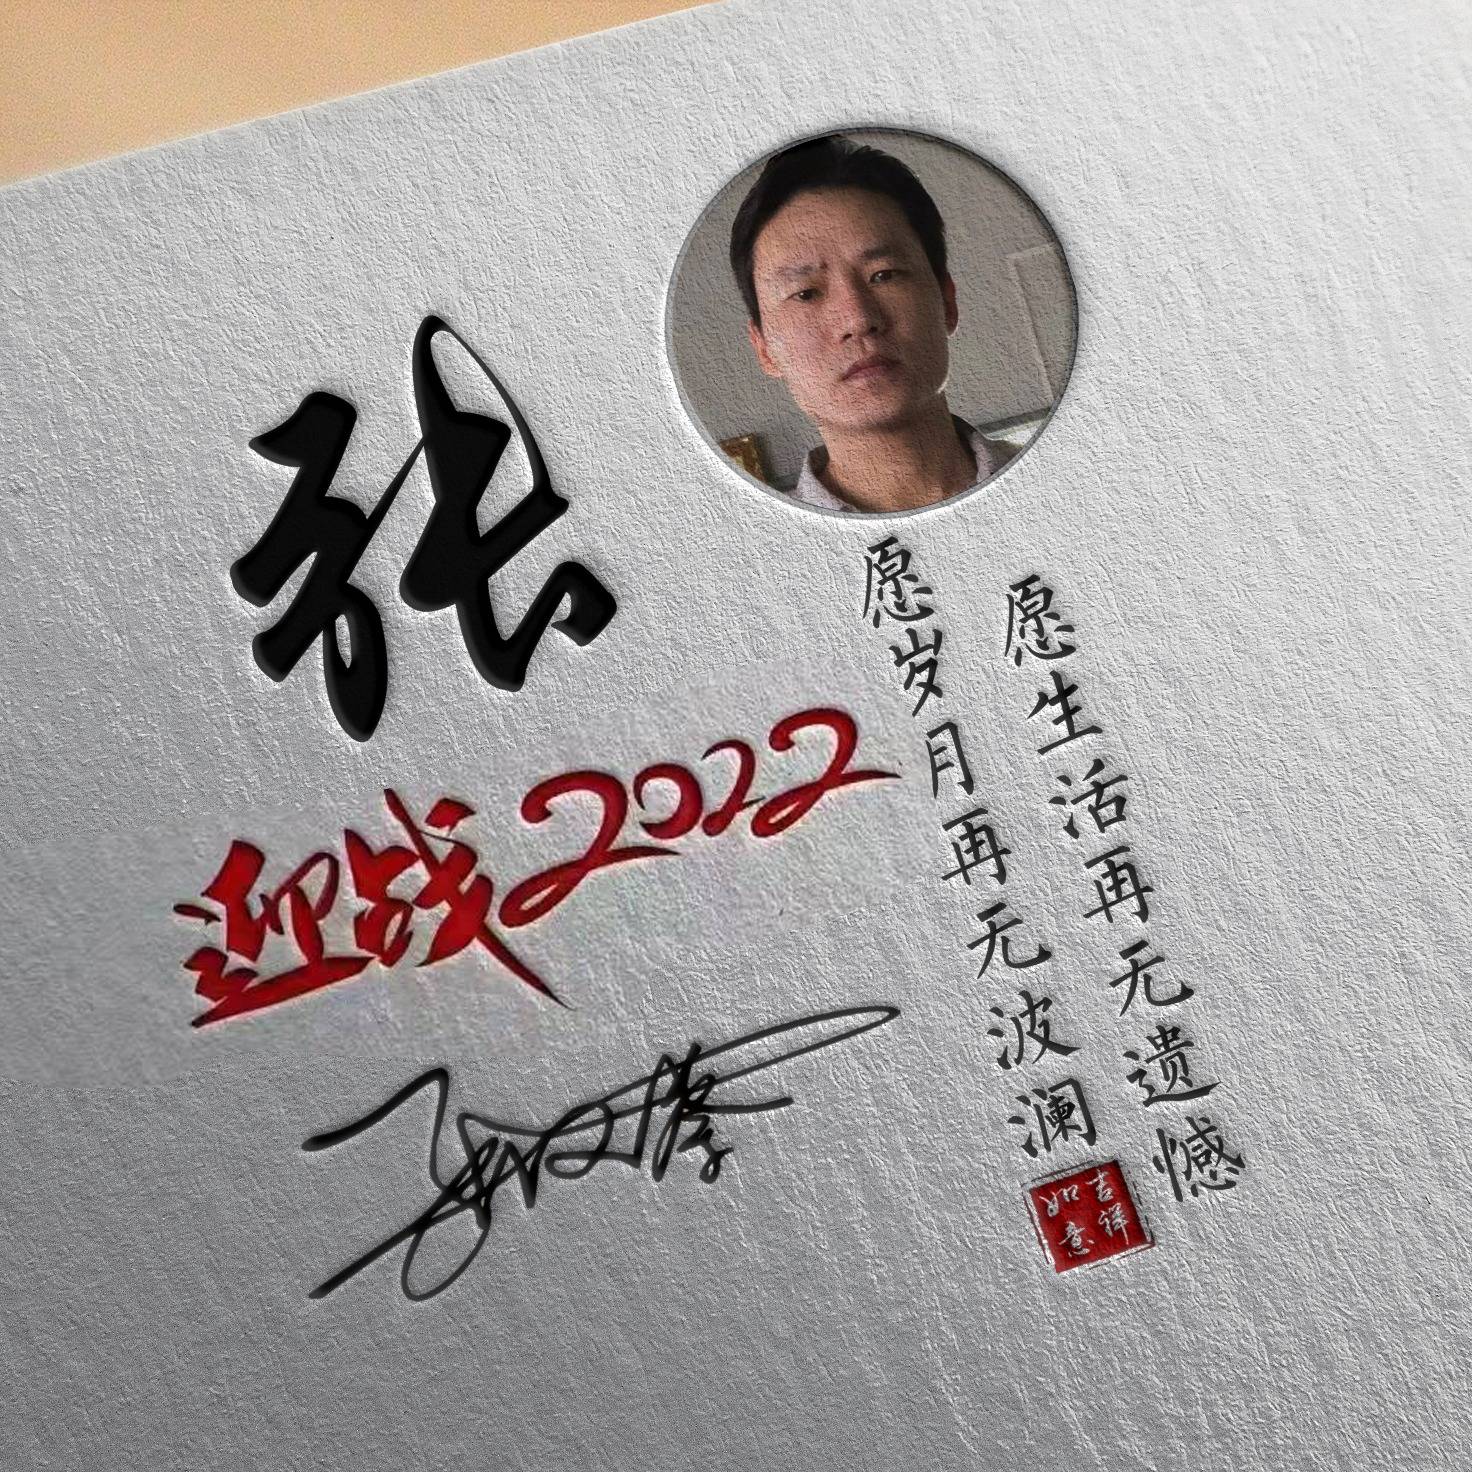 张
迎战2022
愿生活再无遗憾
愿岁月再无波澜
吉祥
如意